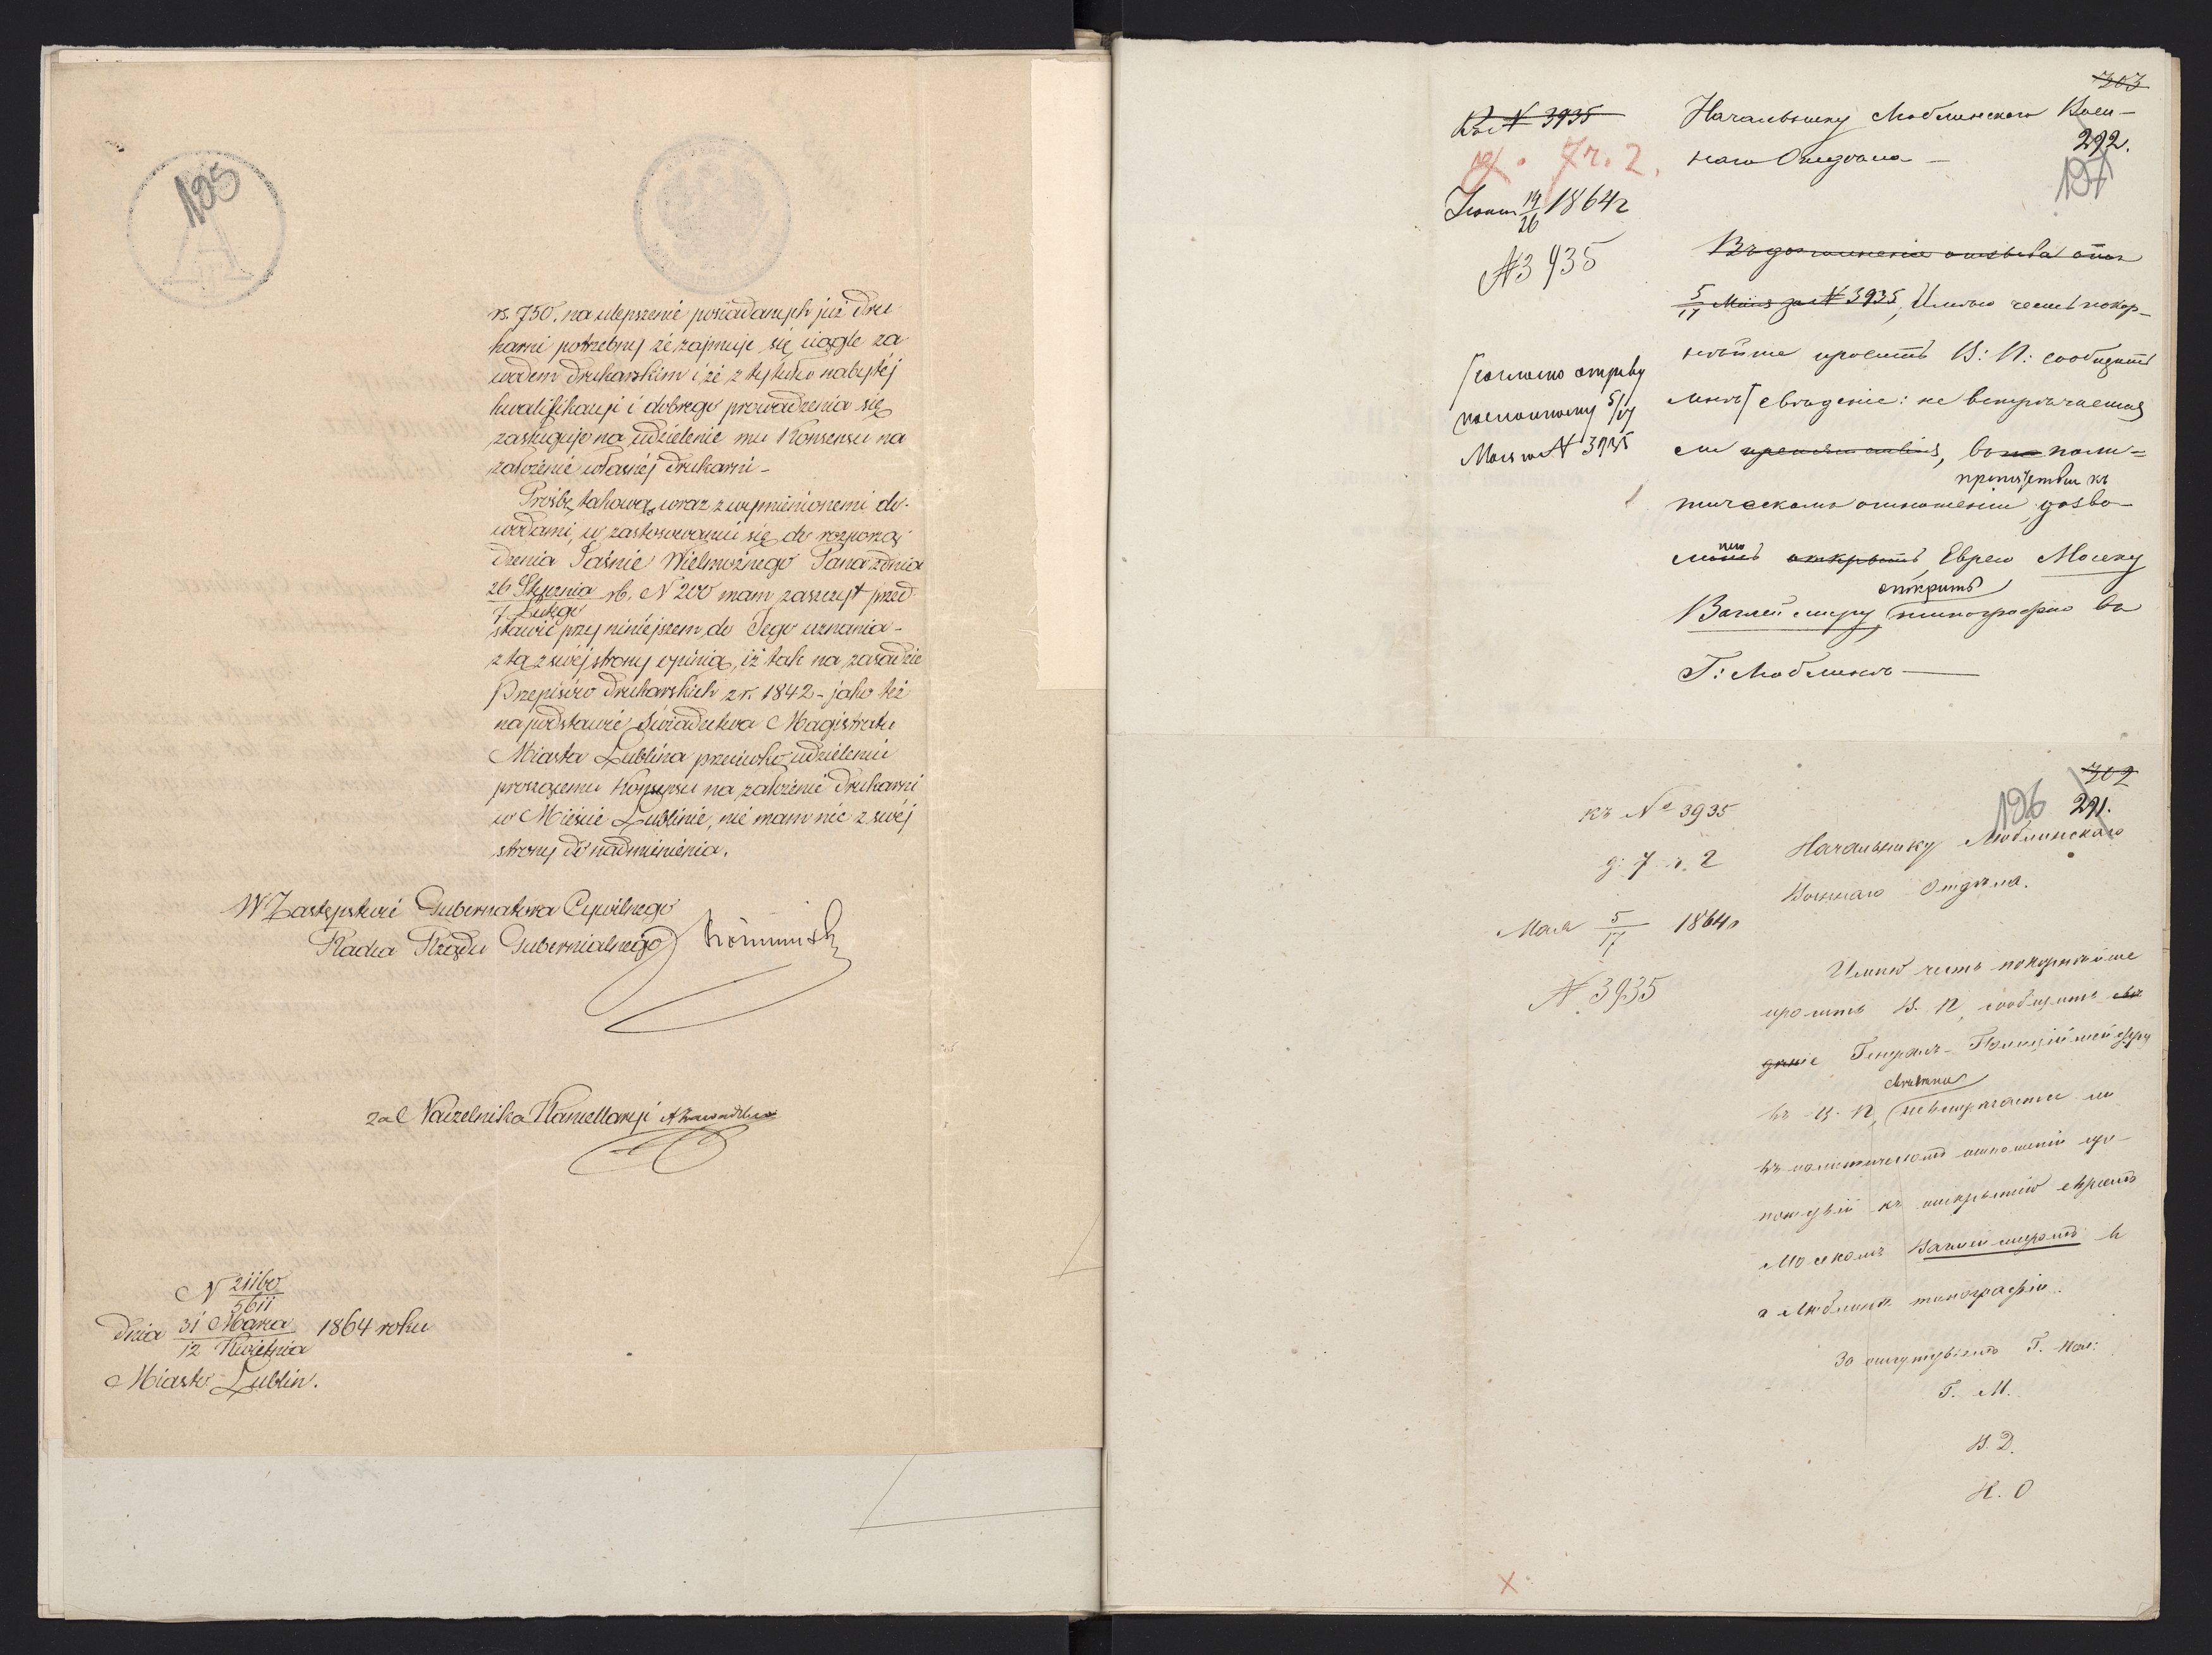 195
rs. 750. na ulepszenie posiadanych już dru
karni potrzebny że zajmuje się ciągle za
wodem drukarskim i że z tytułu nabytej
kwalifikacji i dobrego prowadzenia się
zasługuje na udzielenie mu Konsensu na
założenie własnéj drukarni –
Prośbę takową wraz z wymienionemi do-
wodami, w zastosowaniu się do rozporzą
dzenia Jaśnie Wielmożnego Pana z dnia
26 Stycznia
7 Lutego
rb. N 200 mam zaszczyt przed
stawić przy niniejszem do Jego uznania –
z tą z swéj strony opinią, iż tak na zasadzie
Przepisów Drukarskich z r. 1842 – jako też
na podstawie Świadectwa Magistratu
Miasta Lublina przeciwko udzieleniu
proszącemu Konsensu na założenie drukarni
w Mieście Lublinie, nie mam nic z swéj
strony do nadmienienia.
W Zastępstwie Gubernatora Cywilnego
Radca Rządu Gubernialnego
za Naczelnika Kancellaryi
N 21160
5611
dnia 31 Marca
12 Kwietnia
1864 roku
Miasto Lublin.
303
292.
197
Къ N 3935
д. 7 ч. 2.
1864 г
N 3935
Начальнику Люблинскаго Воен-
наго Отдѣла –
Въ дополненіе отзыва отъ
5/17 Мая за N 3935, Имѣю честь покор-
нѣйше просить В: П: сообщить
мнѣ свѣденіе: не встрѣчается
ли препятствія, въ поли-
препятствія къ
тическомъ отношеніи дозво-
ленію открыть Еврею Мошку
открыть
типографію въ
Г: Люблинѣ –
согласно отзыву
посланному 5/17
Мая N 3935
302
291.
196
къ № 3935
д. 7 ч. 2
Мая 5/17 1864 г
N 3935
Начальнику Люблинскаго
Военнаго Отдѣла.
Имѣю честь покорнѣйше
просить В. П. сообщить свѣ
дѣніе Генералъ-Полиціймейстеру
въ политическомъ отношеніи пре-
къ открытію евреемъ
Мошкомъ
г Люблинѣ типографіи.
За отсутствіемъ Г. Пол:
Г. М.
В. Д.
Н. О